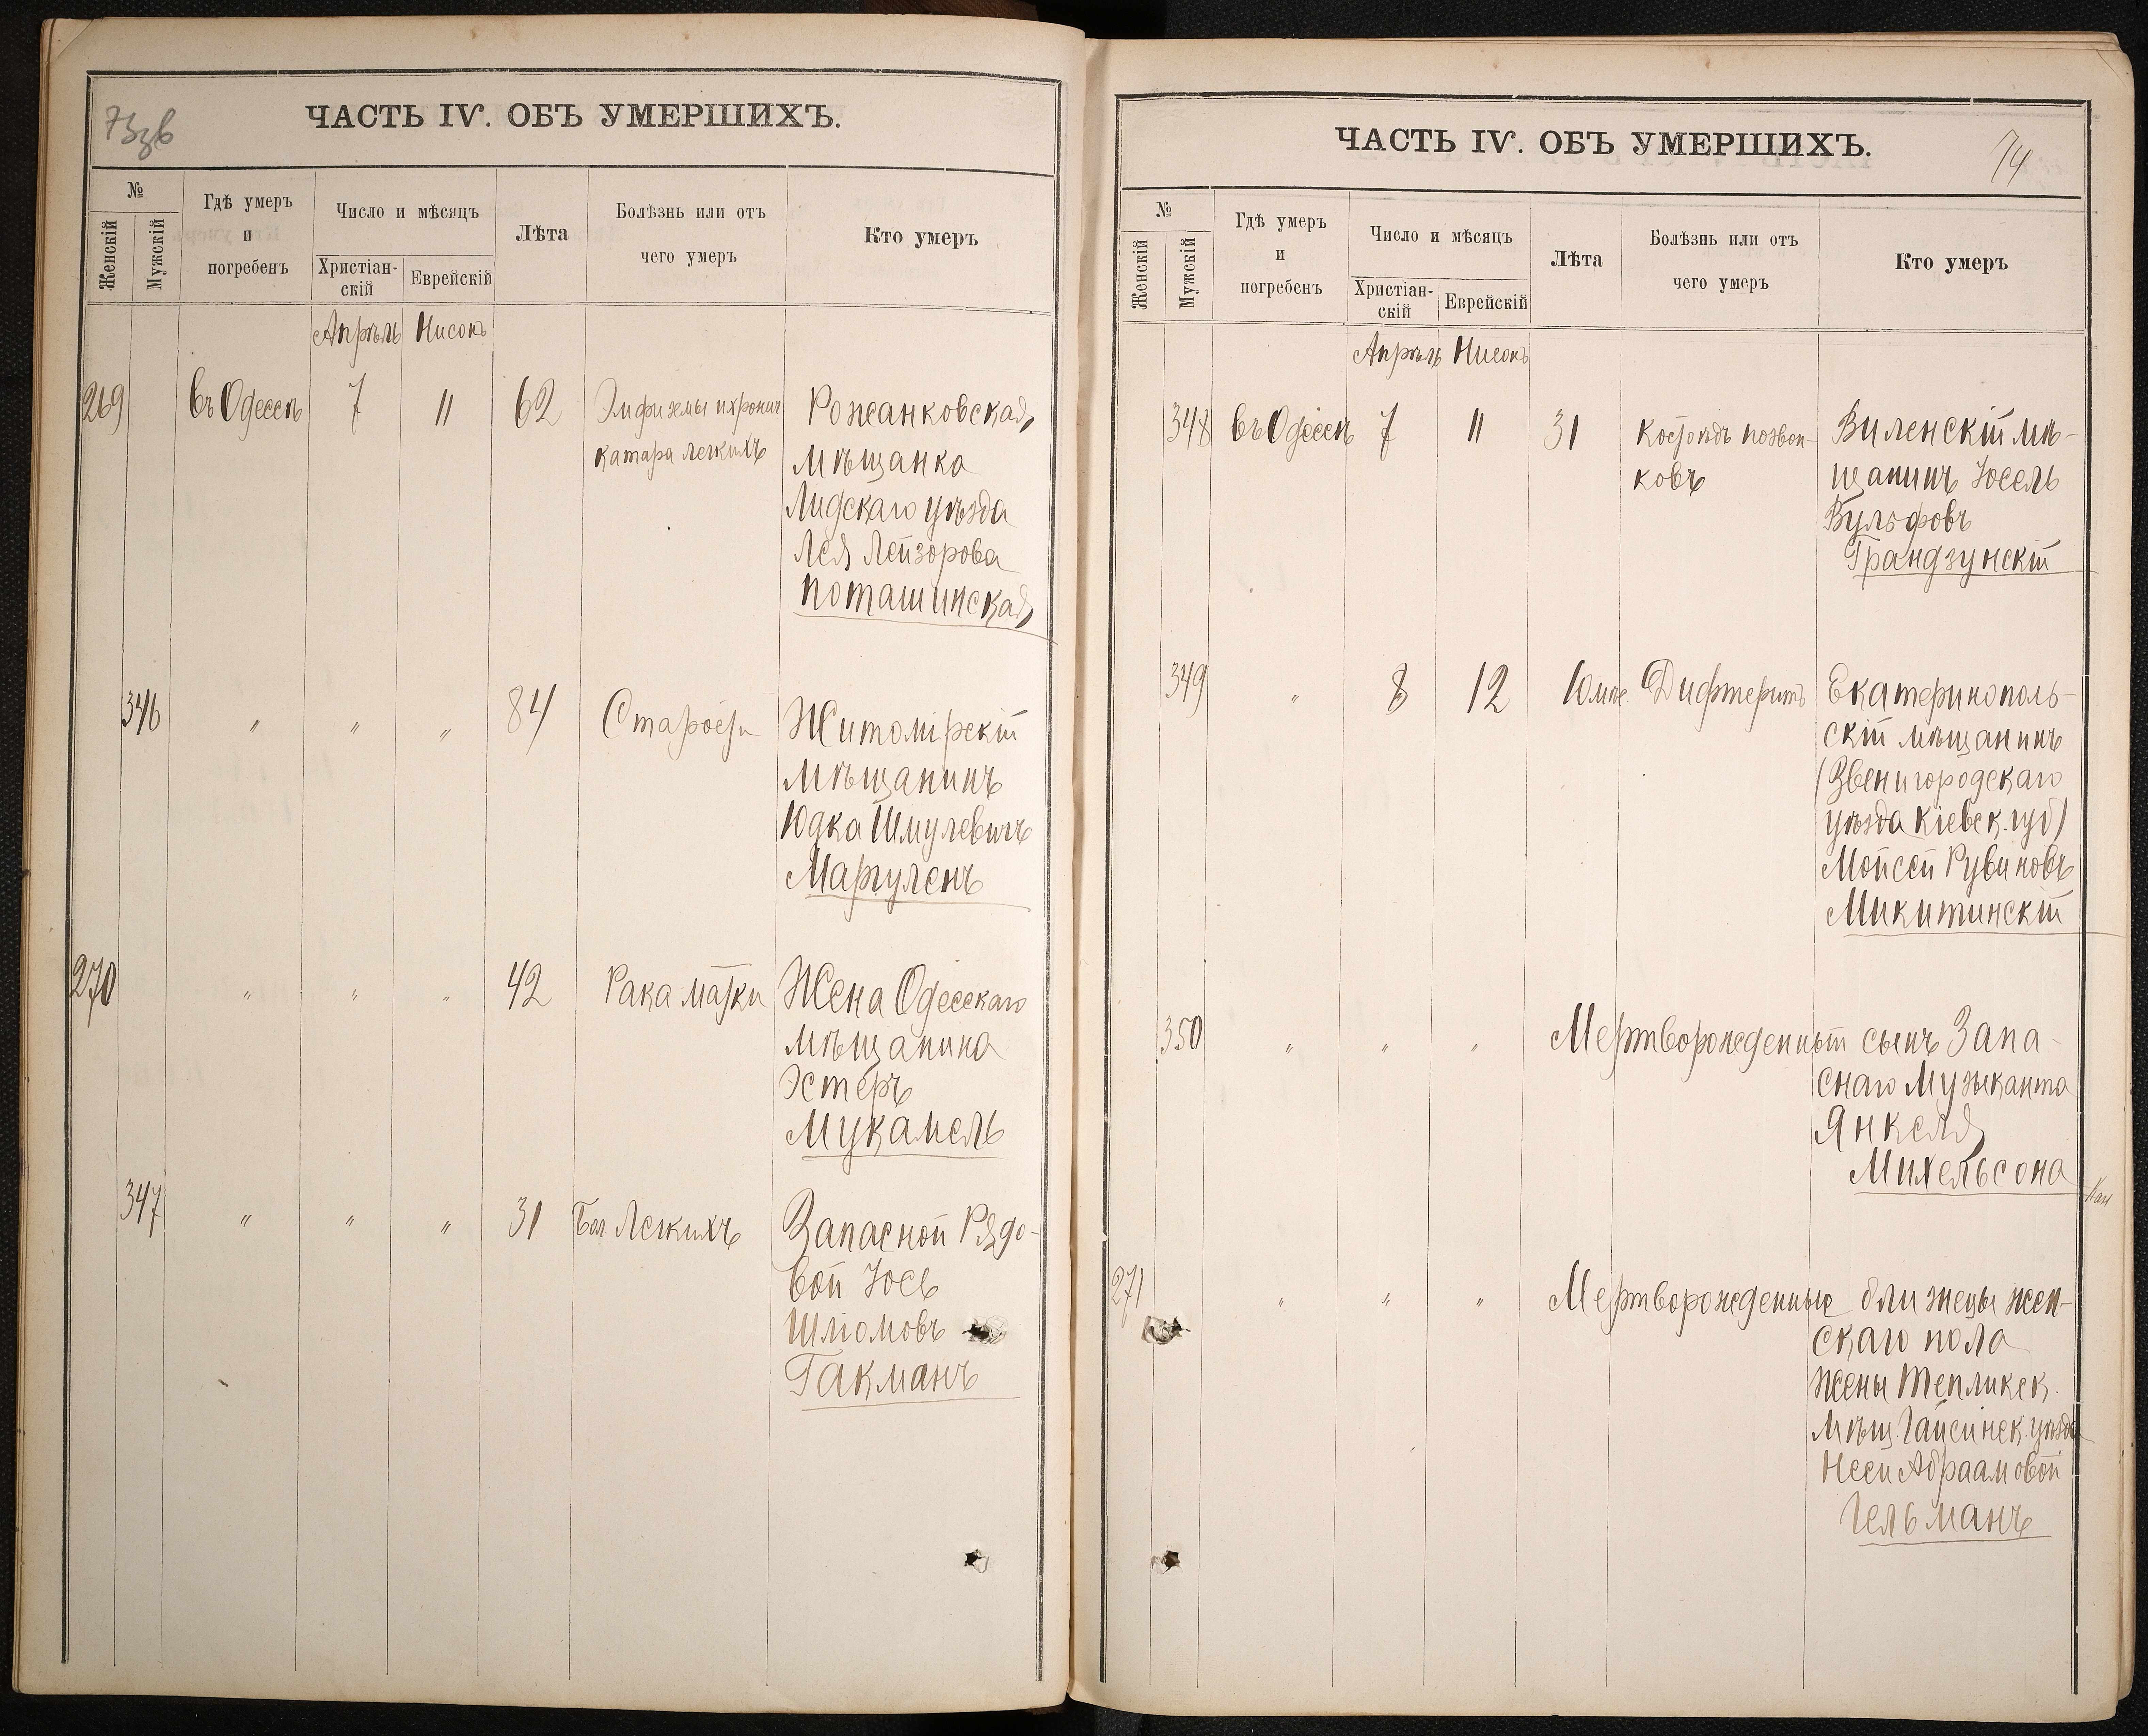 73зв
ЧАСТЬ IV. ОБЪ УМЕРШИХЪ.
№
Женскій
Мужскій
Гдѣ умеръ
и
погребенъ
Число и мѣсяцъ
Христіан-
скій
Еврейскій
Лѣта
Болѣзнь или отъ
чего умеръ
Кто умеръ
Апрѣль Нисонъ
269 въ Одессѣ 7 11 62 Эмфиземы и хронич Рожанковская
катара легкихъ мѣщанка
Лидскаго уѣзда
Лея Лейзорова
Поташинская
346 " " " 84 Старости Житомірскій
мѣщанинъ
Юдка Шмулевичъ
Маргуленъ
270 " " " 42 Рака матки Жена Одесскаго
мѣщанина
Эстеръ
Мукамель
347 " " " 31 Бол. Легкихъ Запасной Рядо-
вой Іось
Шліомовъ
Гакманъ
ЧАСТЬ IV. ОБЪ УМЕРШИХЪ.
74
№
Женскій
Мужскій
Гдѣ умеръ
и
погребенъ
Число и мѣсяцъ
Христіан-
скій
Еврейскій
Лѣта
Болѣзнь или отъ
чего умеръ
Кто умеръ
Апрѣль Нисонъ
348 въ Одессѣ 7 11 31 Костоѣдъ позвон- Виленскій мѣ-
ковъ щанинъ Іосель
Вульфовъ
Грандзунскій
349 " 8 12 10 мѣс. Дифтеритъ Екатеринополь-
скій мѣщанинъ
(Звенигородскаго
уѣзда Кіевск. губ)
Мойсей Рувиновъ
Микитинскій
350 " " " Мертворожденный сынъ Запа-
снаго Музыканта
Янкеля
Михельсона
271 " " " Мертворожденные близнецы жен-
скаго пола
жены Тепликск.
мѣщ. Гайсинск. уѣзда
Неси Абраамовой
Гельманъ